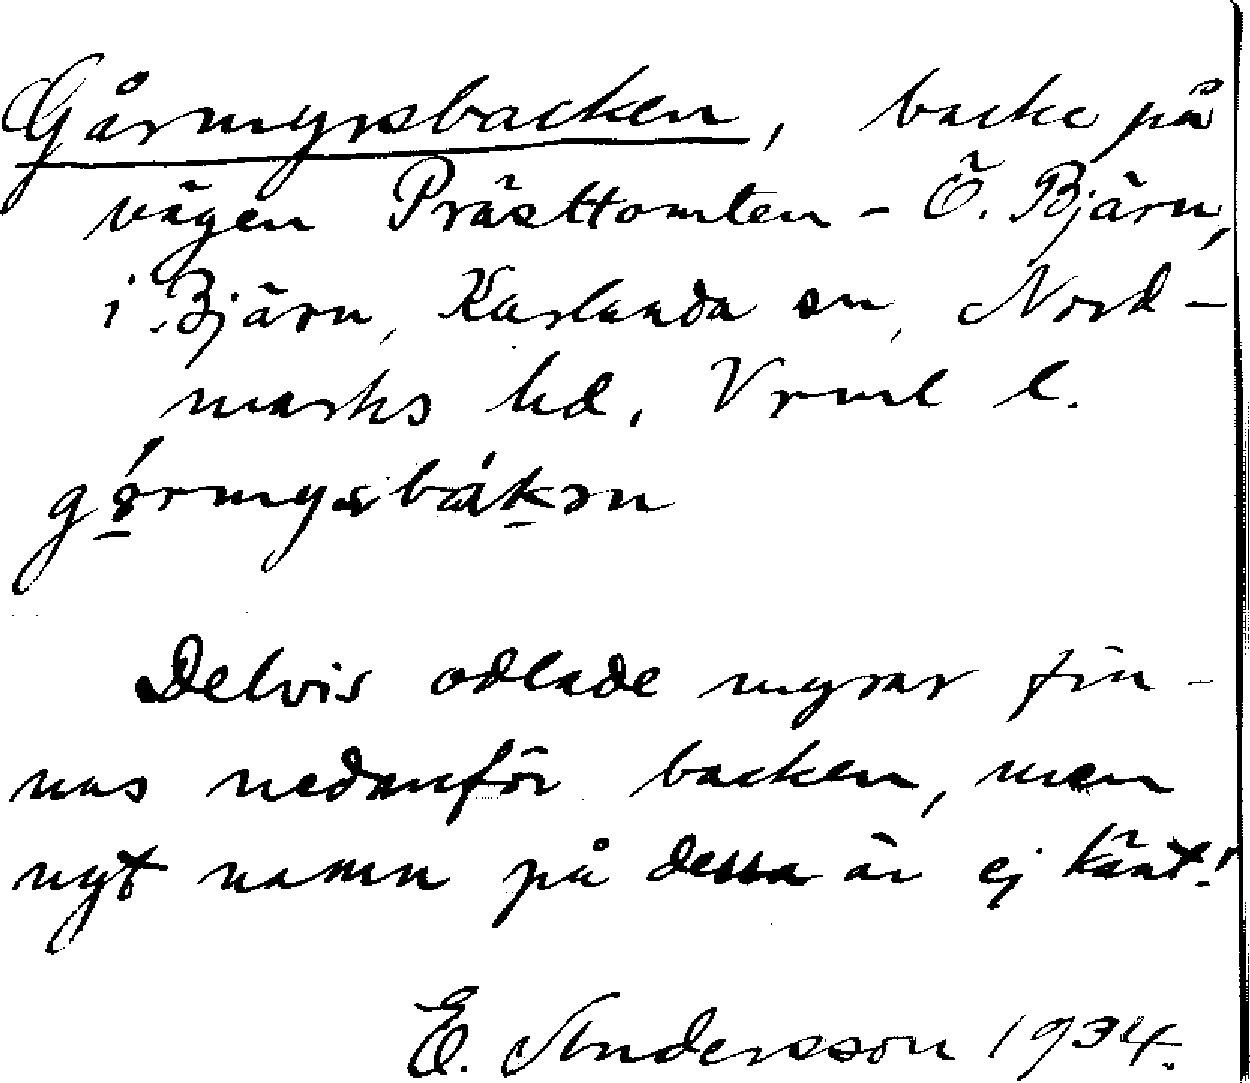 Gårmyrsbacken, backe på
vägen Prästtomten - Ö. Bjärn,
i Bjärn, Karlanda sn, Nord-
marks hd, Vrml l.
Delvis odlade myrar fin-
nas nedanför backen, men
nyt namn på dessa är ej känt!
E. Andersson 1934.